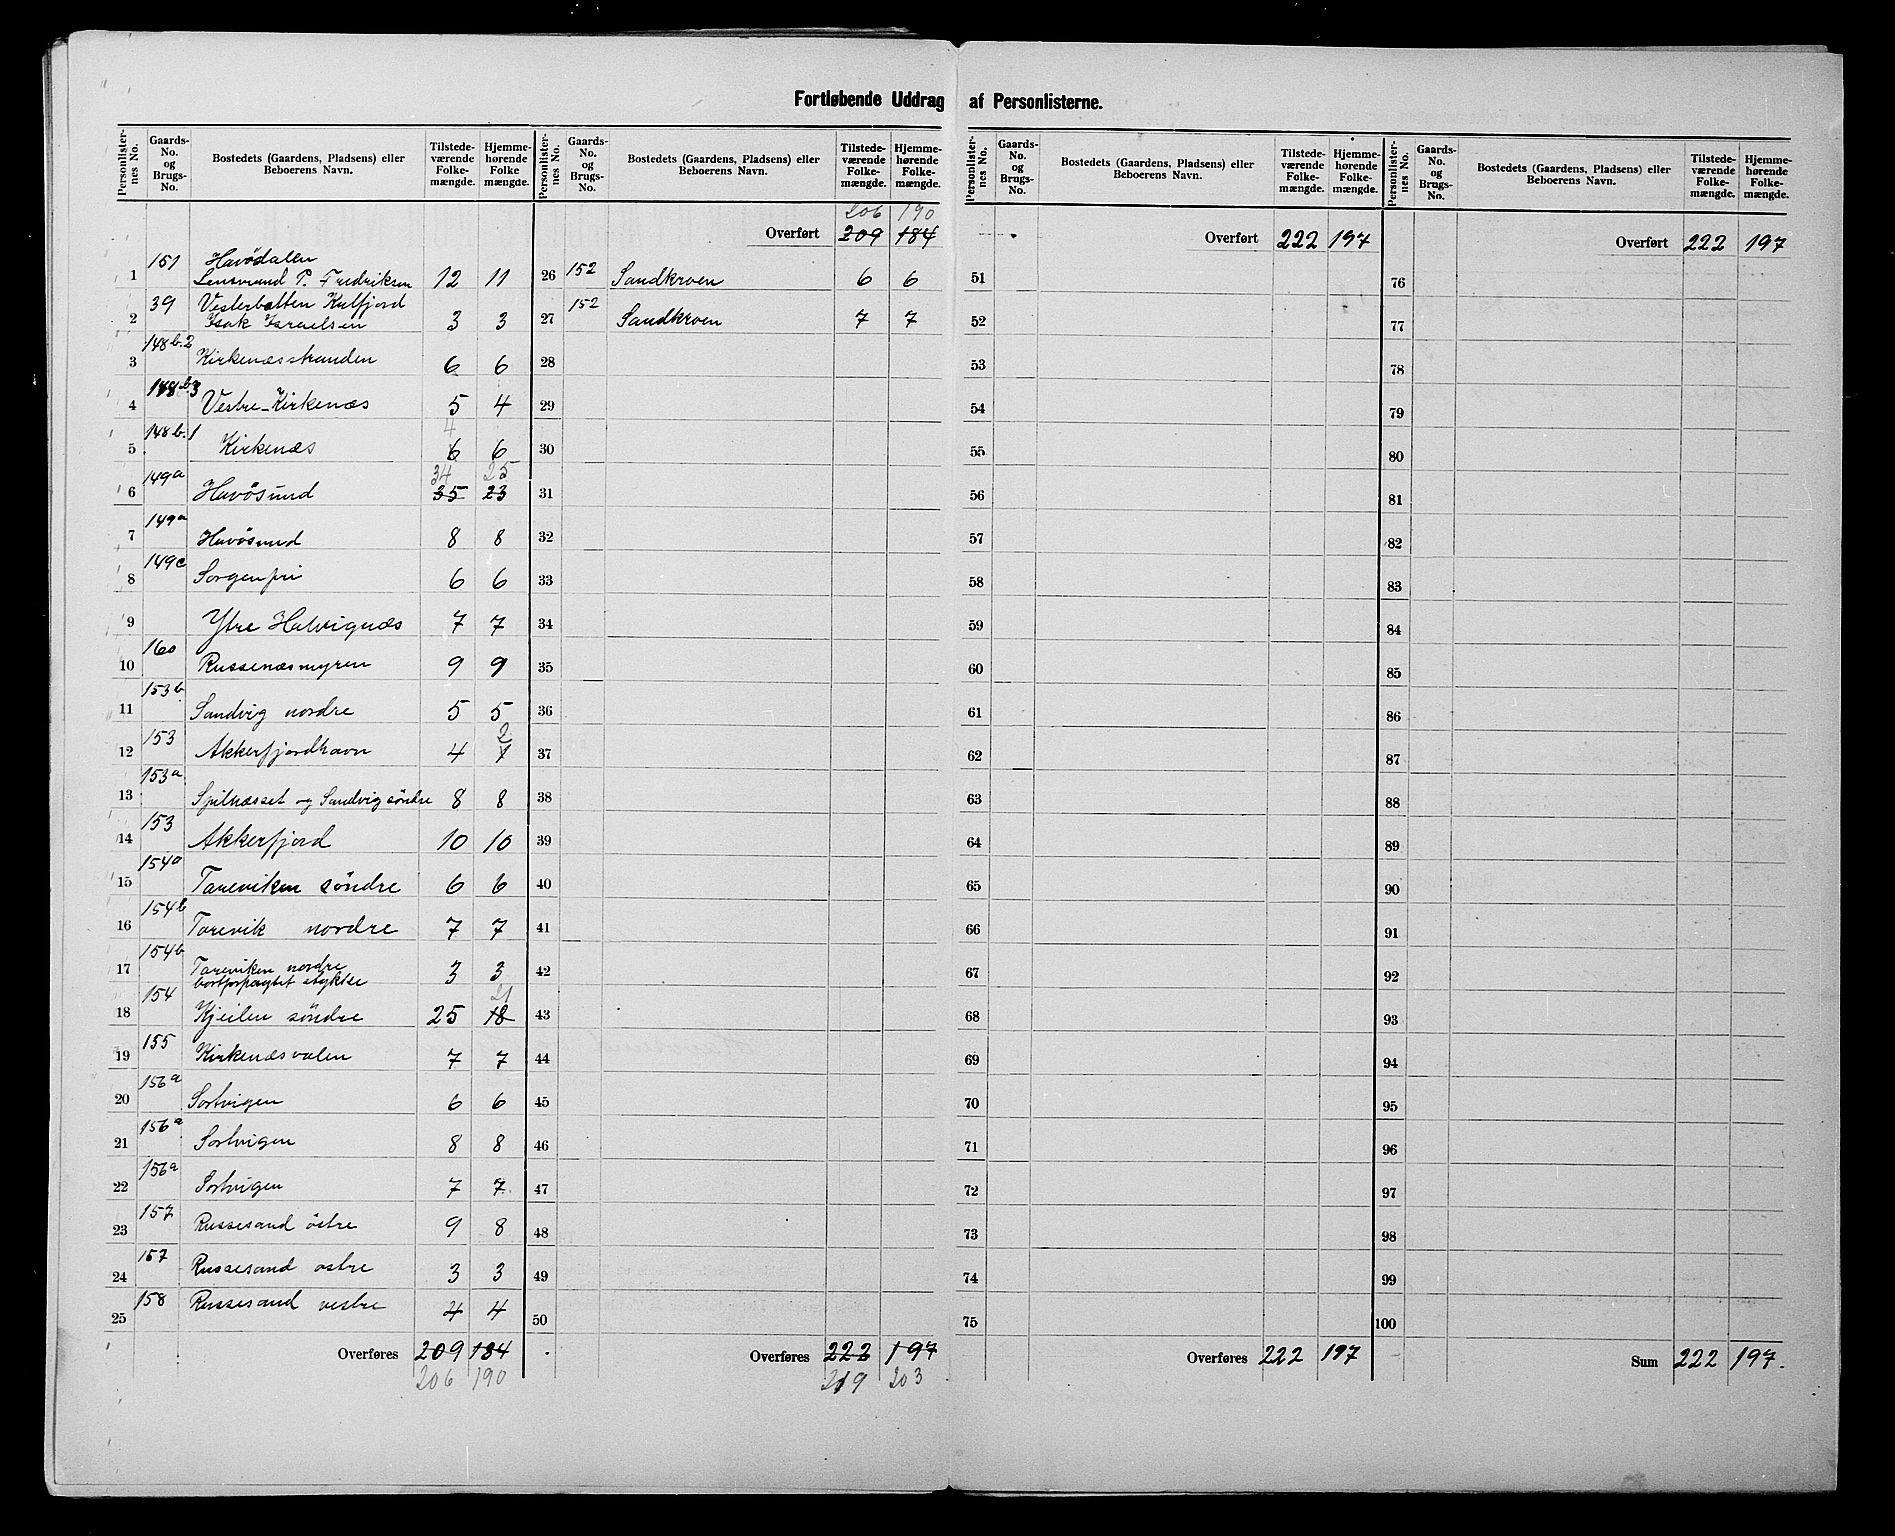 Fortløbende Uddrag af Personlisterne.
Personlister-nes No. Gaards-No. og Brugs-No. Bostedets (Gaardens, Pladsens) eller Beboerens Navn. Tilstede-værende Folke-mængde. Hjemme-hørende Folke mængde.
1 151 Havödalen
P. Fredriksen 12 11
2 39 Vesterbotten Kulfjord
Isak Israelsen 3 3
3 148 b.2 Kirkenæsstranden 6 6
4 148 b3 Vestre-Kirkenæs 5 4
4
5 148 b.1 Kirkenæs 6 6
34 25
6 149a Havösund 35 23
7 149a Havösund 8 8
8 149c Sorgenfri 6 6
9 Ytre Halvignæs 7 7
10 160 Russenæsmyren 9 9
11 153b Sandvig nordre 5 5
2
12 153 Akkerfjordhavn 4 1
13 153a Spilnæsset og Sandvig söndre 8 8
14 153 Akkerfjord 10 10
15 154a Tareviken söndre 6 6
16 154b Tarevik nordre 7 7
17 154b Tareviken nordre
bortforpagtet stykke 3 3
21
18 154 Kjeilen söndre 25 18
19 155 Kirkenæsvalen 7 7
20 156a Sortvigen 6 6
21 156a Sortvigen 8 8
22 156a Sortvigen 7 7
23 157 Russesand östre 9 8
24 157 Russesand östre 3 3
25 158 Russesand vestre 4 4
Overføres 209 184
206 190
Personlister-nes No. Gaards-No. og Brugs-No. Bostedets (Gaardens, Pladsens) eller Beboerens Navn. Tilstede-værende Folke-mængde. Hjemme-hørende Folke-mængde.
206 190
Overført 209 184
26 152 Sandkroen 6 6
27 152 Sandkroen 7 7
28
29
30
31
32
33
34
35
36
37
38
39
40
41
42
43
44
45
46
47
48
49
50
Overføres 222 197
219 203
Personlister-nes No. Gaards-No. og Brugs-No. Bostedets (Gaardens, Pladsens) eller Beboerens Navn. Tilstede-værende Folke-mængde. Hjemme-hørende Folke-mængde.
Overført 222 197
51
52
53
54
55
56
57
58
59
60
61
62
63
64
65
66
67
68
69
70
71
72
73
74
75
Overføres 222 197
Personlister-nes No. Gaards-No. og Brugs-No. Bostedets (Gaardens, Pladsens) eller Beboerens Navn. Tilstede-værende Folke-mængde. Hjemme-hørende Folke-mængde.
Overført 222 197
76
77
78
79
80
81
82
83
84
85
86
87
88
89
90
91
92
93
94
95
96
97
98
99
100
Sum 222 197.